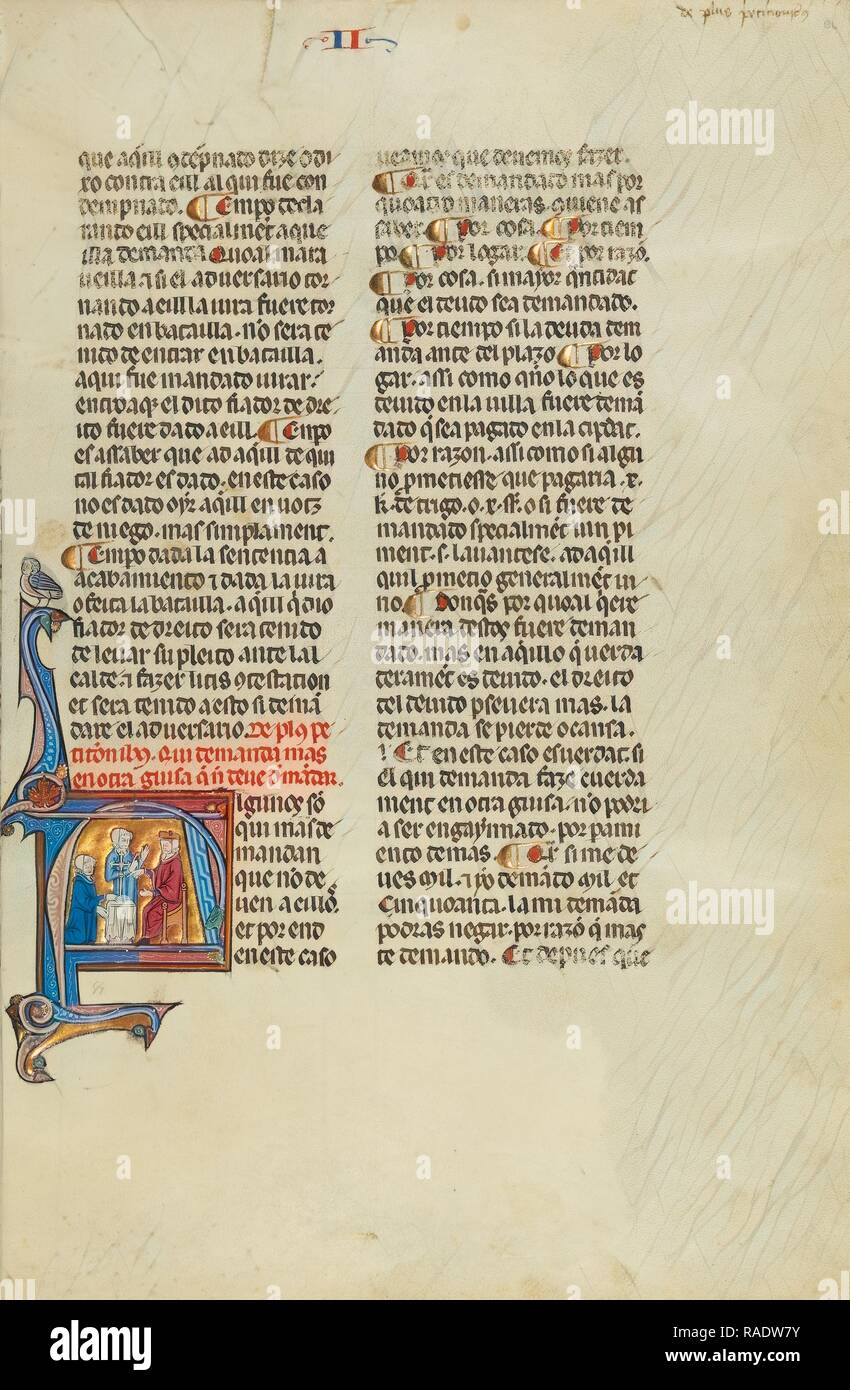 de plus peticionib9
II
que aq̃ill ꝯtẽpnado dize o di
xo contra eill al qui fue con
dempnado. ¶ Empo decla
rando eill specialmẽt aque
illa demanda Quoal mara
ueilla ⁊ si el aduersario tor
nando a eill la iura fuere tor
nado en batailla. nõ sera te
nido de entrar en batailla.
aqui fue mandado iurar.
entroaq̃ el dito fiador de dre
ito fuere dado a eill. ¶ Enpo
es assaber que ad aqui de qui
tal fiador es dado. en este caso
no es dado oyr aq̃ill en uoz
de niego. mas simplament.
¶ Empo dada la sentencia a
acabamiento ⁊ dada la iura
o feita la batailla. aq̃ill q̃ dio
fiador de dreito sera tenido
de leuar su pleito ante lal
calde. ⁊ fazer litis ꝯtestation
et sera tenido a esto si demã
dare el aduersario. De pl9 pe
titõnib9. Qui demanda mas
en otra guisa q̃ ñ deue dmãdar.
Algunos sõ
qui mas de
mandan
que nõ de
uen a eillõ.
et por end
en este caso
ueamos que deuemos fazer.
¶ Et es demandado mas por
quoatro maneras. quiene as
saber. ¶ Por cosa. ¶ Por tiem
po ¶ Por logar. ¶ Et por razõ.
¶ Por cosa. si mayor q̃ntidat
que el deudo sea demandado.
¶ Por tiempo si la deuda dem
anda ante del plazo ¶ Por lo
gar. assi como q̃ño lo que es
deuido en la uilla fuere demã
dado q̃ sea pagado en la cipdat.
¶ Por razon. assi como si algu
no p̱metiesse que pagaria .x.
k. de trigo. o .x. ss. o si fuere de
mandado specialmẽt uin pi
ment. s. lauantese. ad aq̃ill
quil p̱metio generalmẽt ui
no. ¶ Donq̃s por quoal q̃ere
manera destos fuere deman
dado. mas en aq̃illo q̃ uerda
deramẽt es deuido. el dreito
del deuido p̱seuera mas. la
demanda se pierde o cansa.
Et en este caso es uerdat. si
el qui demanda faze cuerda
ment en otra guisa. nõ podri
a ser engaynnado. por pami
ento demas. ¶ Qr̃ si me de
ues Mil. ⁊ yo demãdo Mil. et
Cinquoanta. la mi demãda
podras negar. por razõ q̃ mas
te demando. Et depues que
alamy
Image ID: RADW7Y
www.alamy.com